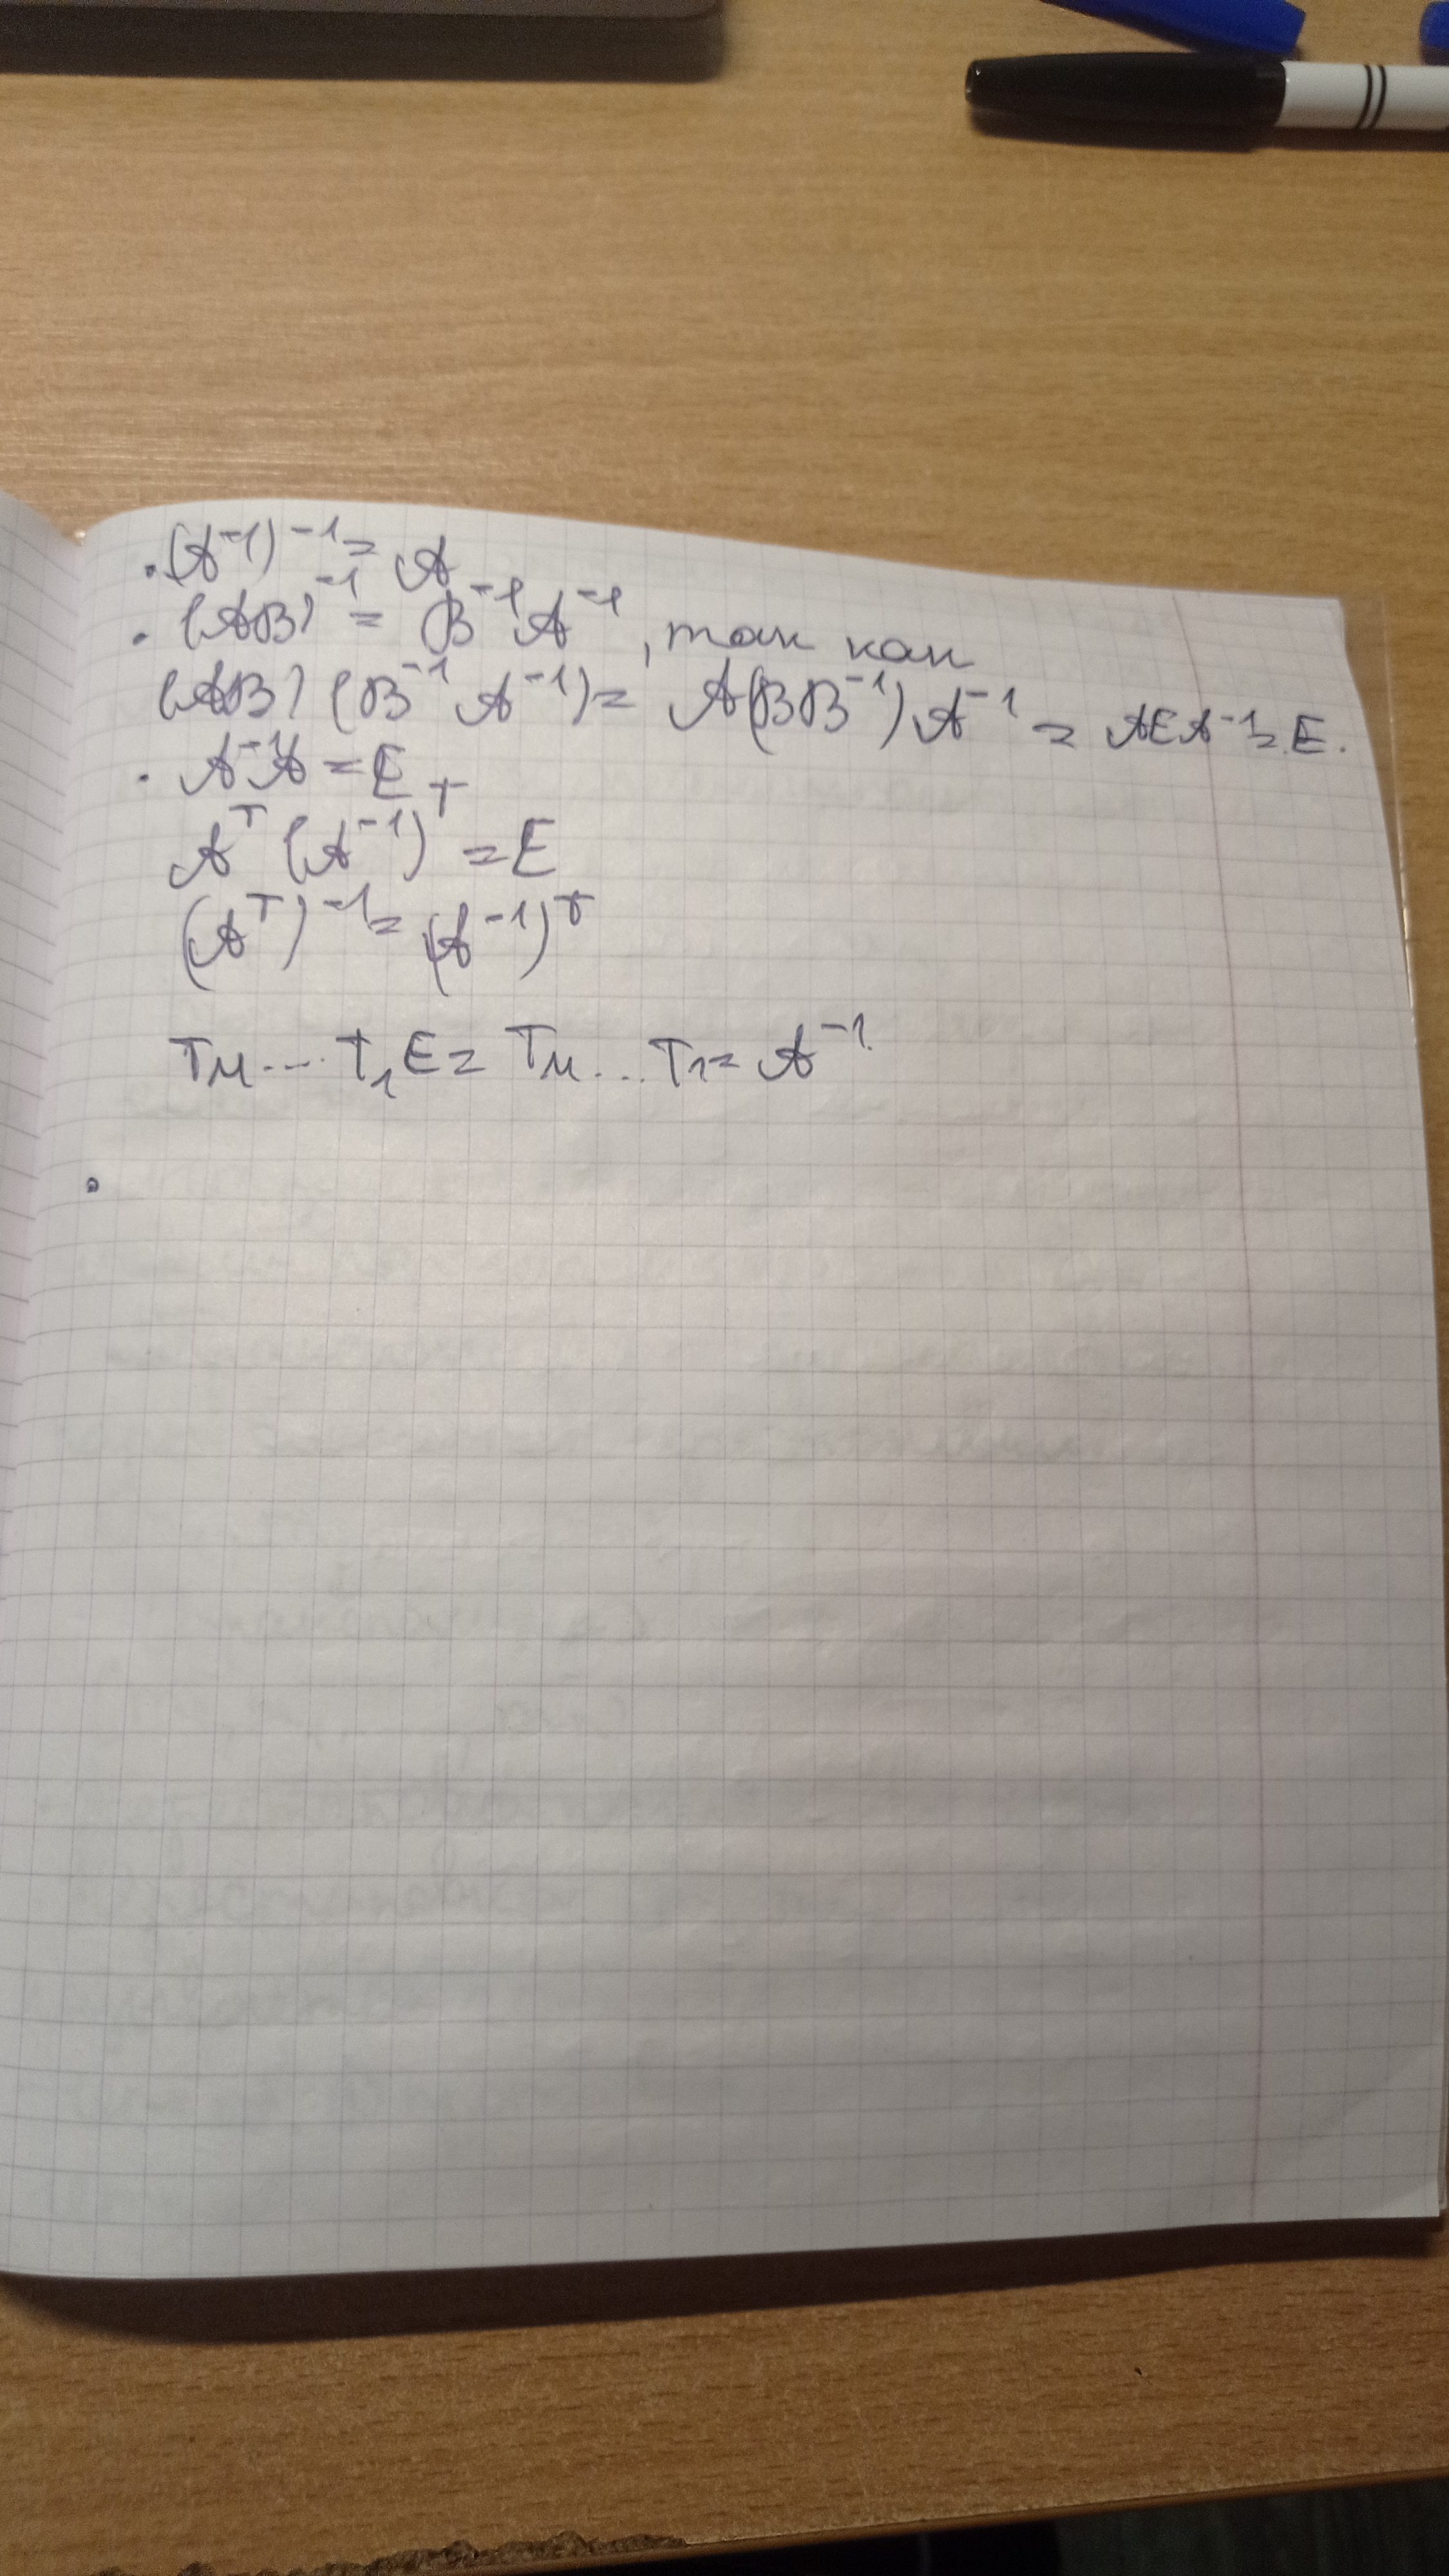 · (A⁻¹)⁻¹ = A
· (AB)⁻¹ = B⁻¹A⁻¹, так как
(AB)(B⁻¹A⁻¹) = A(BB⁻¹)A⁻¹ = AEA⁻¹ = E.
· A⁻¹A = E
Aᵀ(A⁻¹)ᵀ = E
(Aᵀ)⁻¹ = (A⁻¹)ᵀ
Tм... T₁E = Tм... T₁ = A⁻¹.